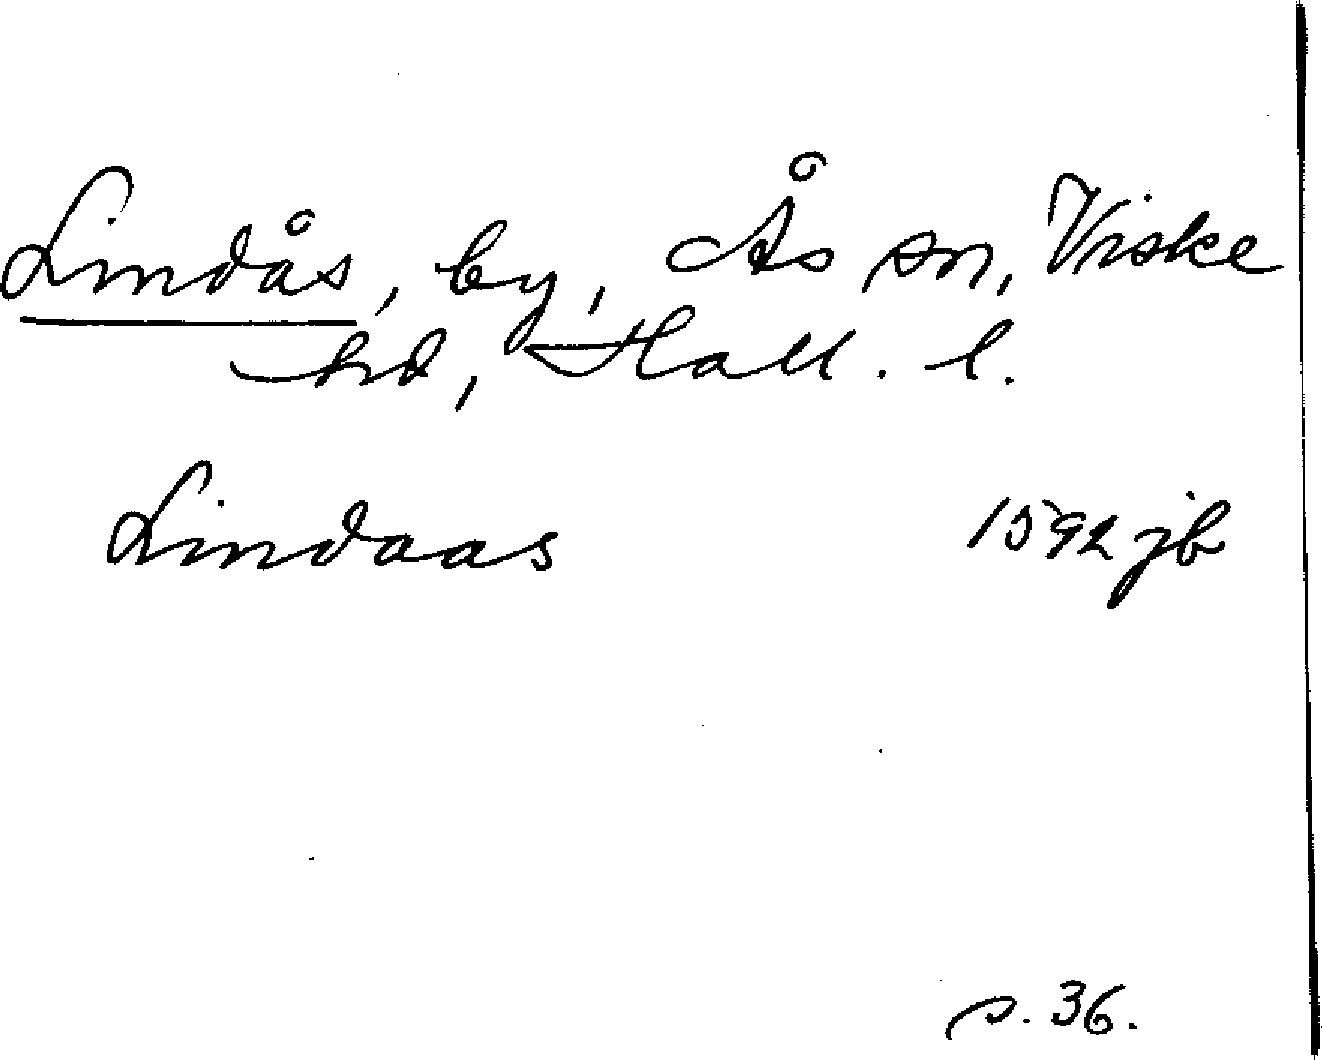 Lindås, by, Ås sn, Viske
hd, Hall. l.
Lindaas 1592 jb
s. 36.